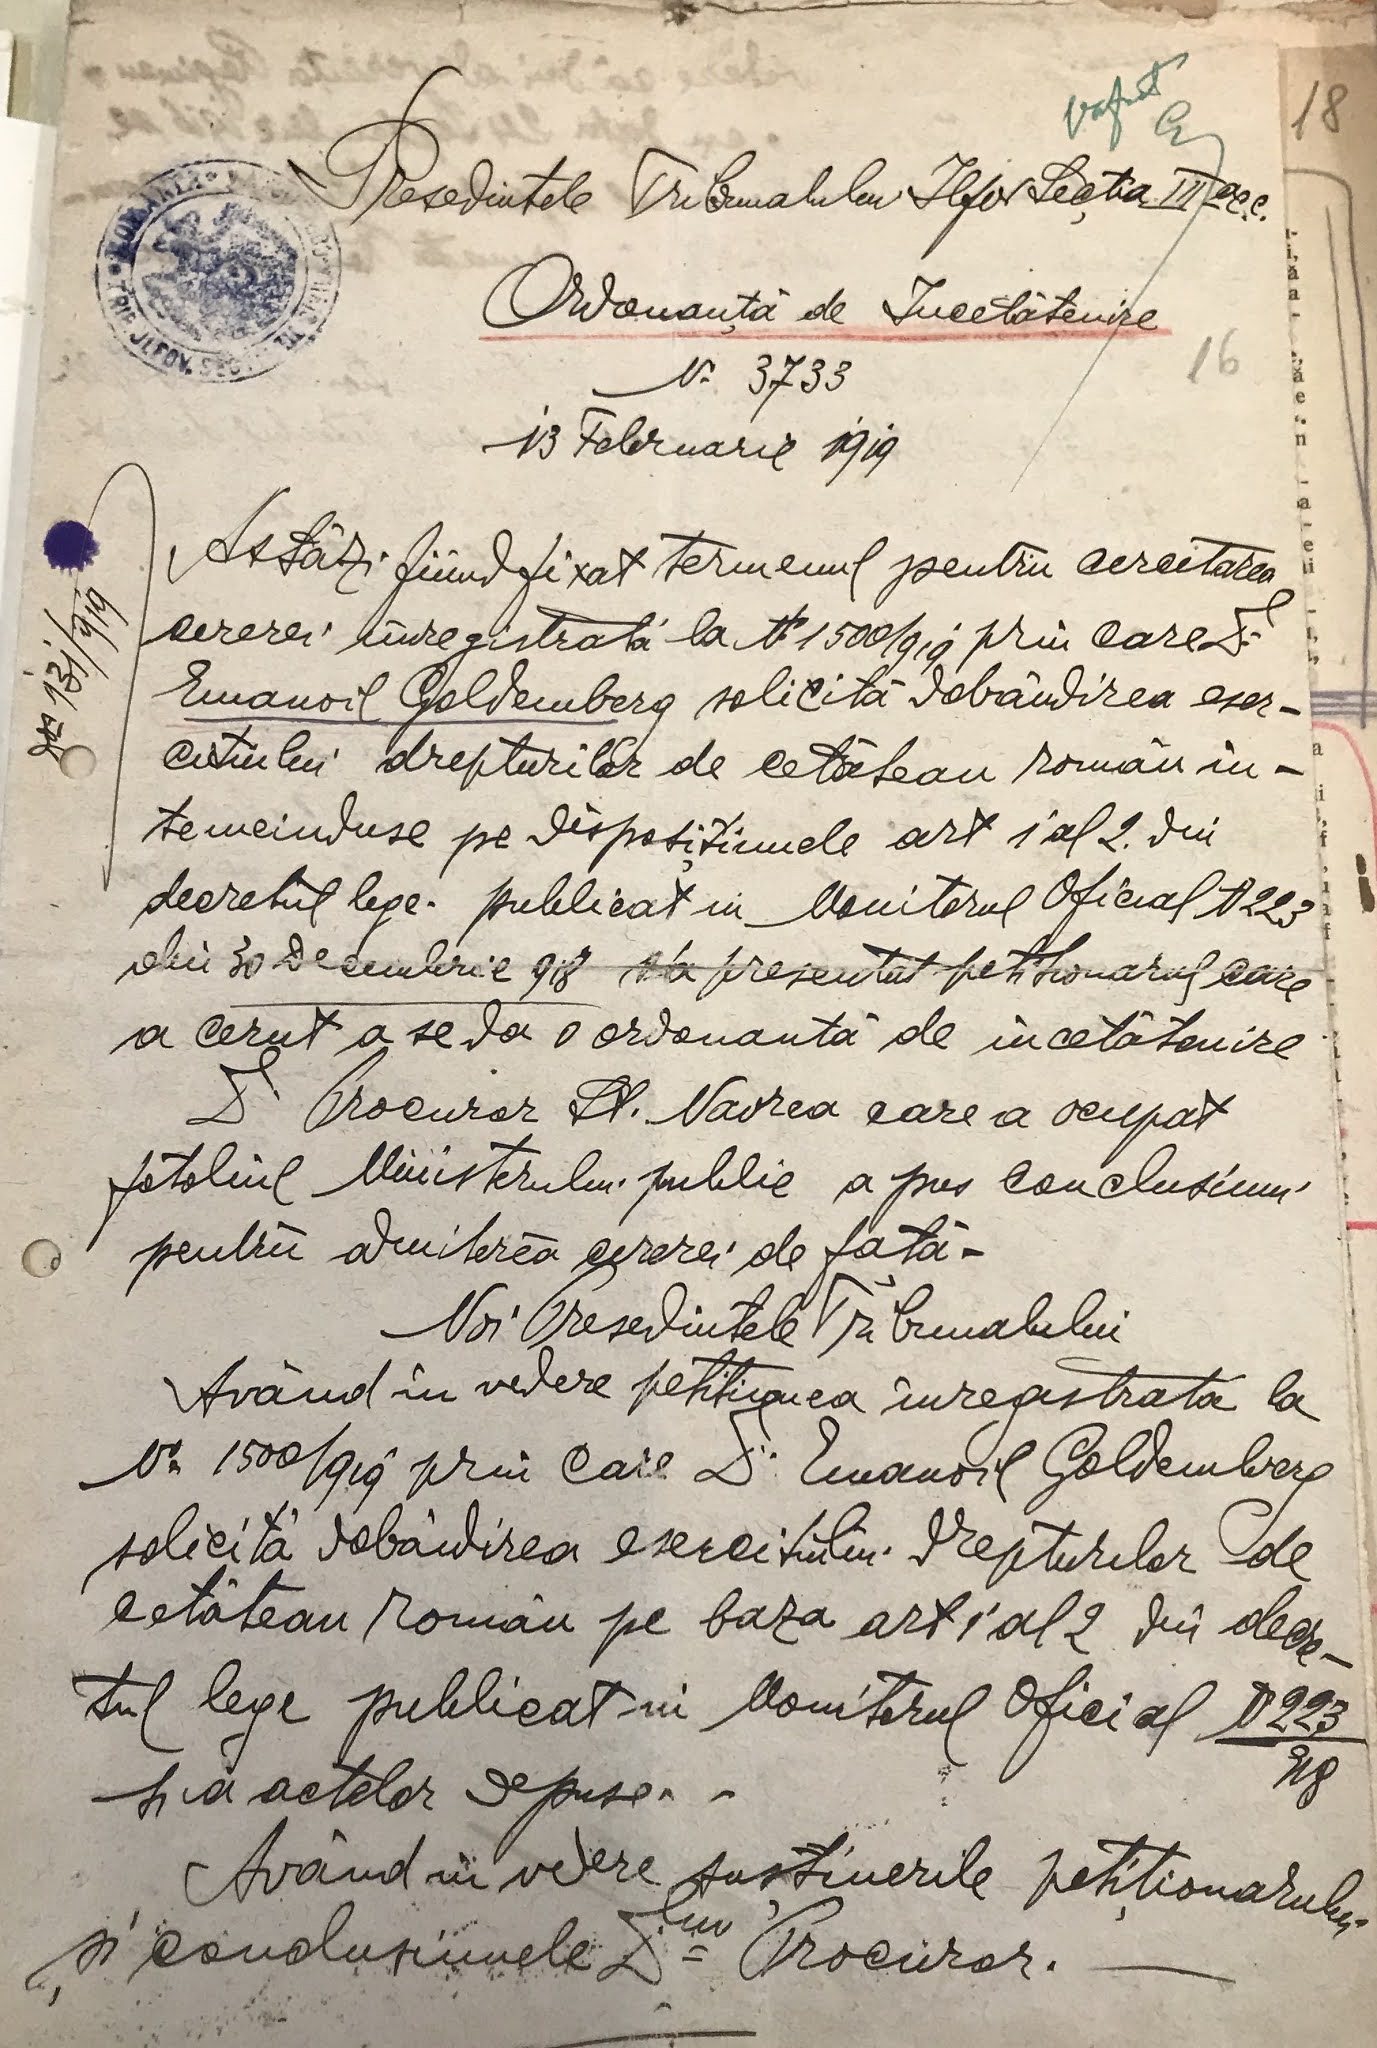 18
Presedintele Tribunalului Ilfov Secția III c.c.
Ordonanță de Incetățenire
16
No 3733
13 Februarie 1919
Astăzi fiind fixat termenul pentru cercetarea
cererei înregistrată la No 1500/919 prin care Dl
Emanoil Goldemberg solicită dobândirea exer-
cițiului drepturilor de cetățean român în-
temeinduse pe dispozițiunele art 1 al 2. din
decretul lege publicat in Monitorul Oficial No 223
din 30 Decembrie 918 s'a presentat petitionarul care
a cerut a se da o ordonantă de incetătenire
Dl Procuror St. Navrea care a ocupat
fotoliul Ministerului public a pus conclusiuni
pentru admiterea cererei de față -
Noi Presedintele Tribunalului
Având în vedere petitiunea înregistrata la
No 1500/919 prin care Dl Emanoil Goldemberg
solicită dobândirea esercitiului drepturilor de
cetătean român pe baza art 1 al 2 din decre-
tul lege publicat in Monitorul Oficial No 223/918
si a actelor depuse. -
Având in vedere susținerile petiționarului
si conclusiunele Dlui Procuror.